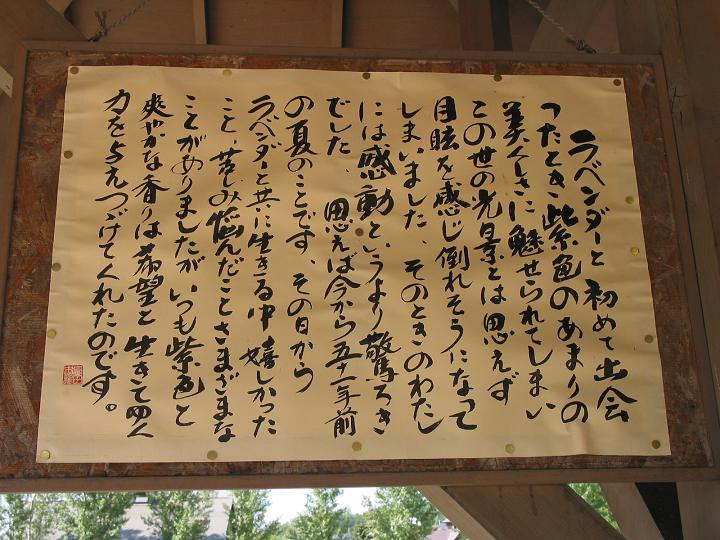 ラベンダーと初めて出会
ったとき紫色のあまりの
美くしさに魅せられてしまい
この世の光景とは思えず
目眩を感じ倒れそうになって
しまいました、そのときのわたし
には感動というより驚ろき
でした、思えば今から五十一年前
の夏のことです、その日から
ラベンダーと共に生きる中嬉しかった
こと、苦しみ悩んだことさまざまな
ことがありましたがいつも紫色と
爽やかな香りは希望と生きてゆく
力を与えつづけてくれたのです。